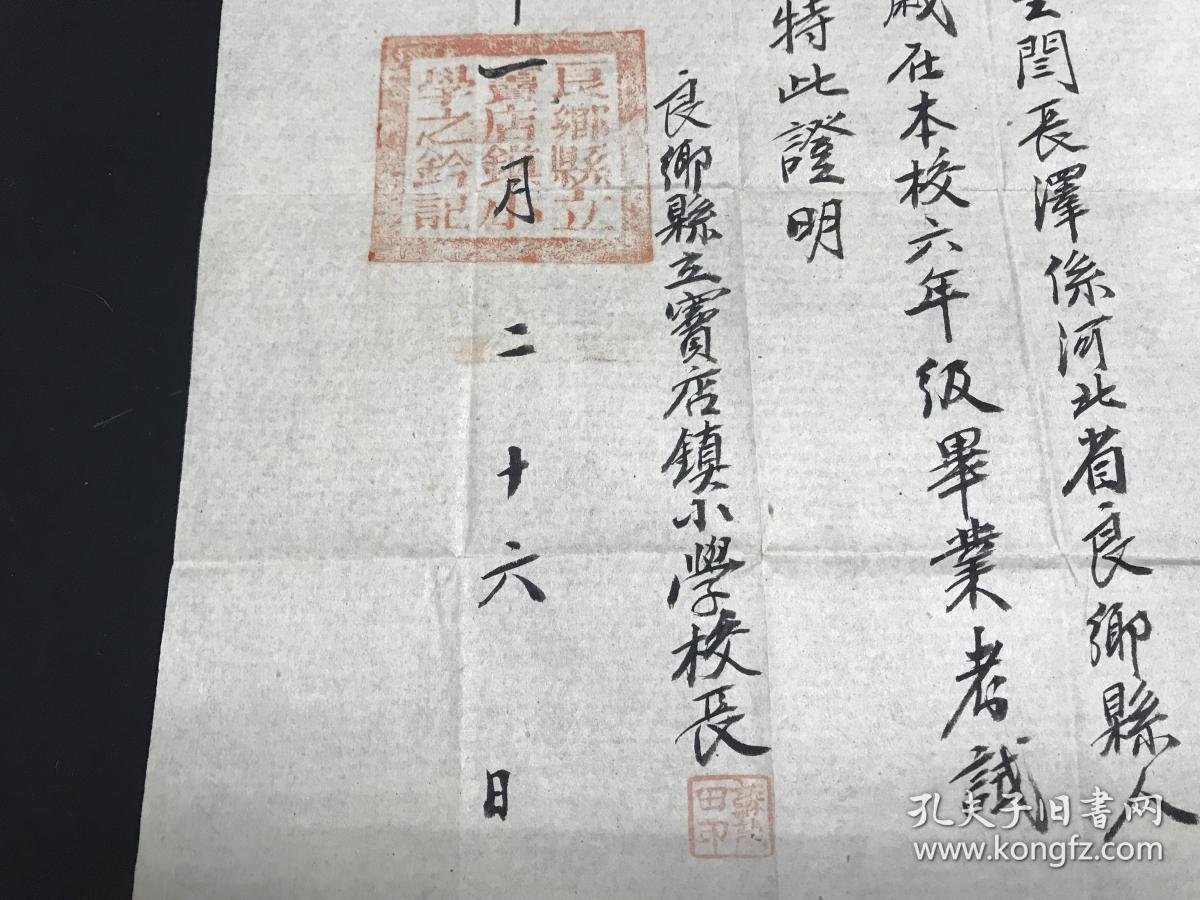 閆長澤係河北省良鄉縣人
在本校六年級畢業考試
特此證明
良鄉縣立竇店鎮小學校長
一月二十六日
良鄉縣立
竇店鎮小
學之鈐記
田印
孔夫子旧书网
www.kongfz.com